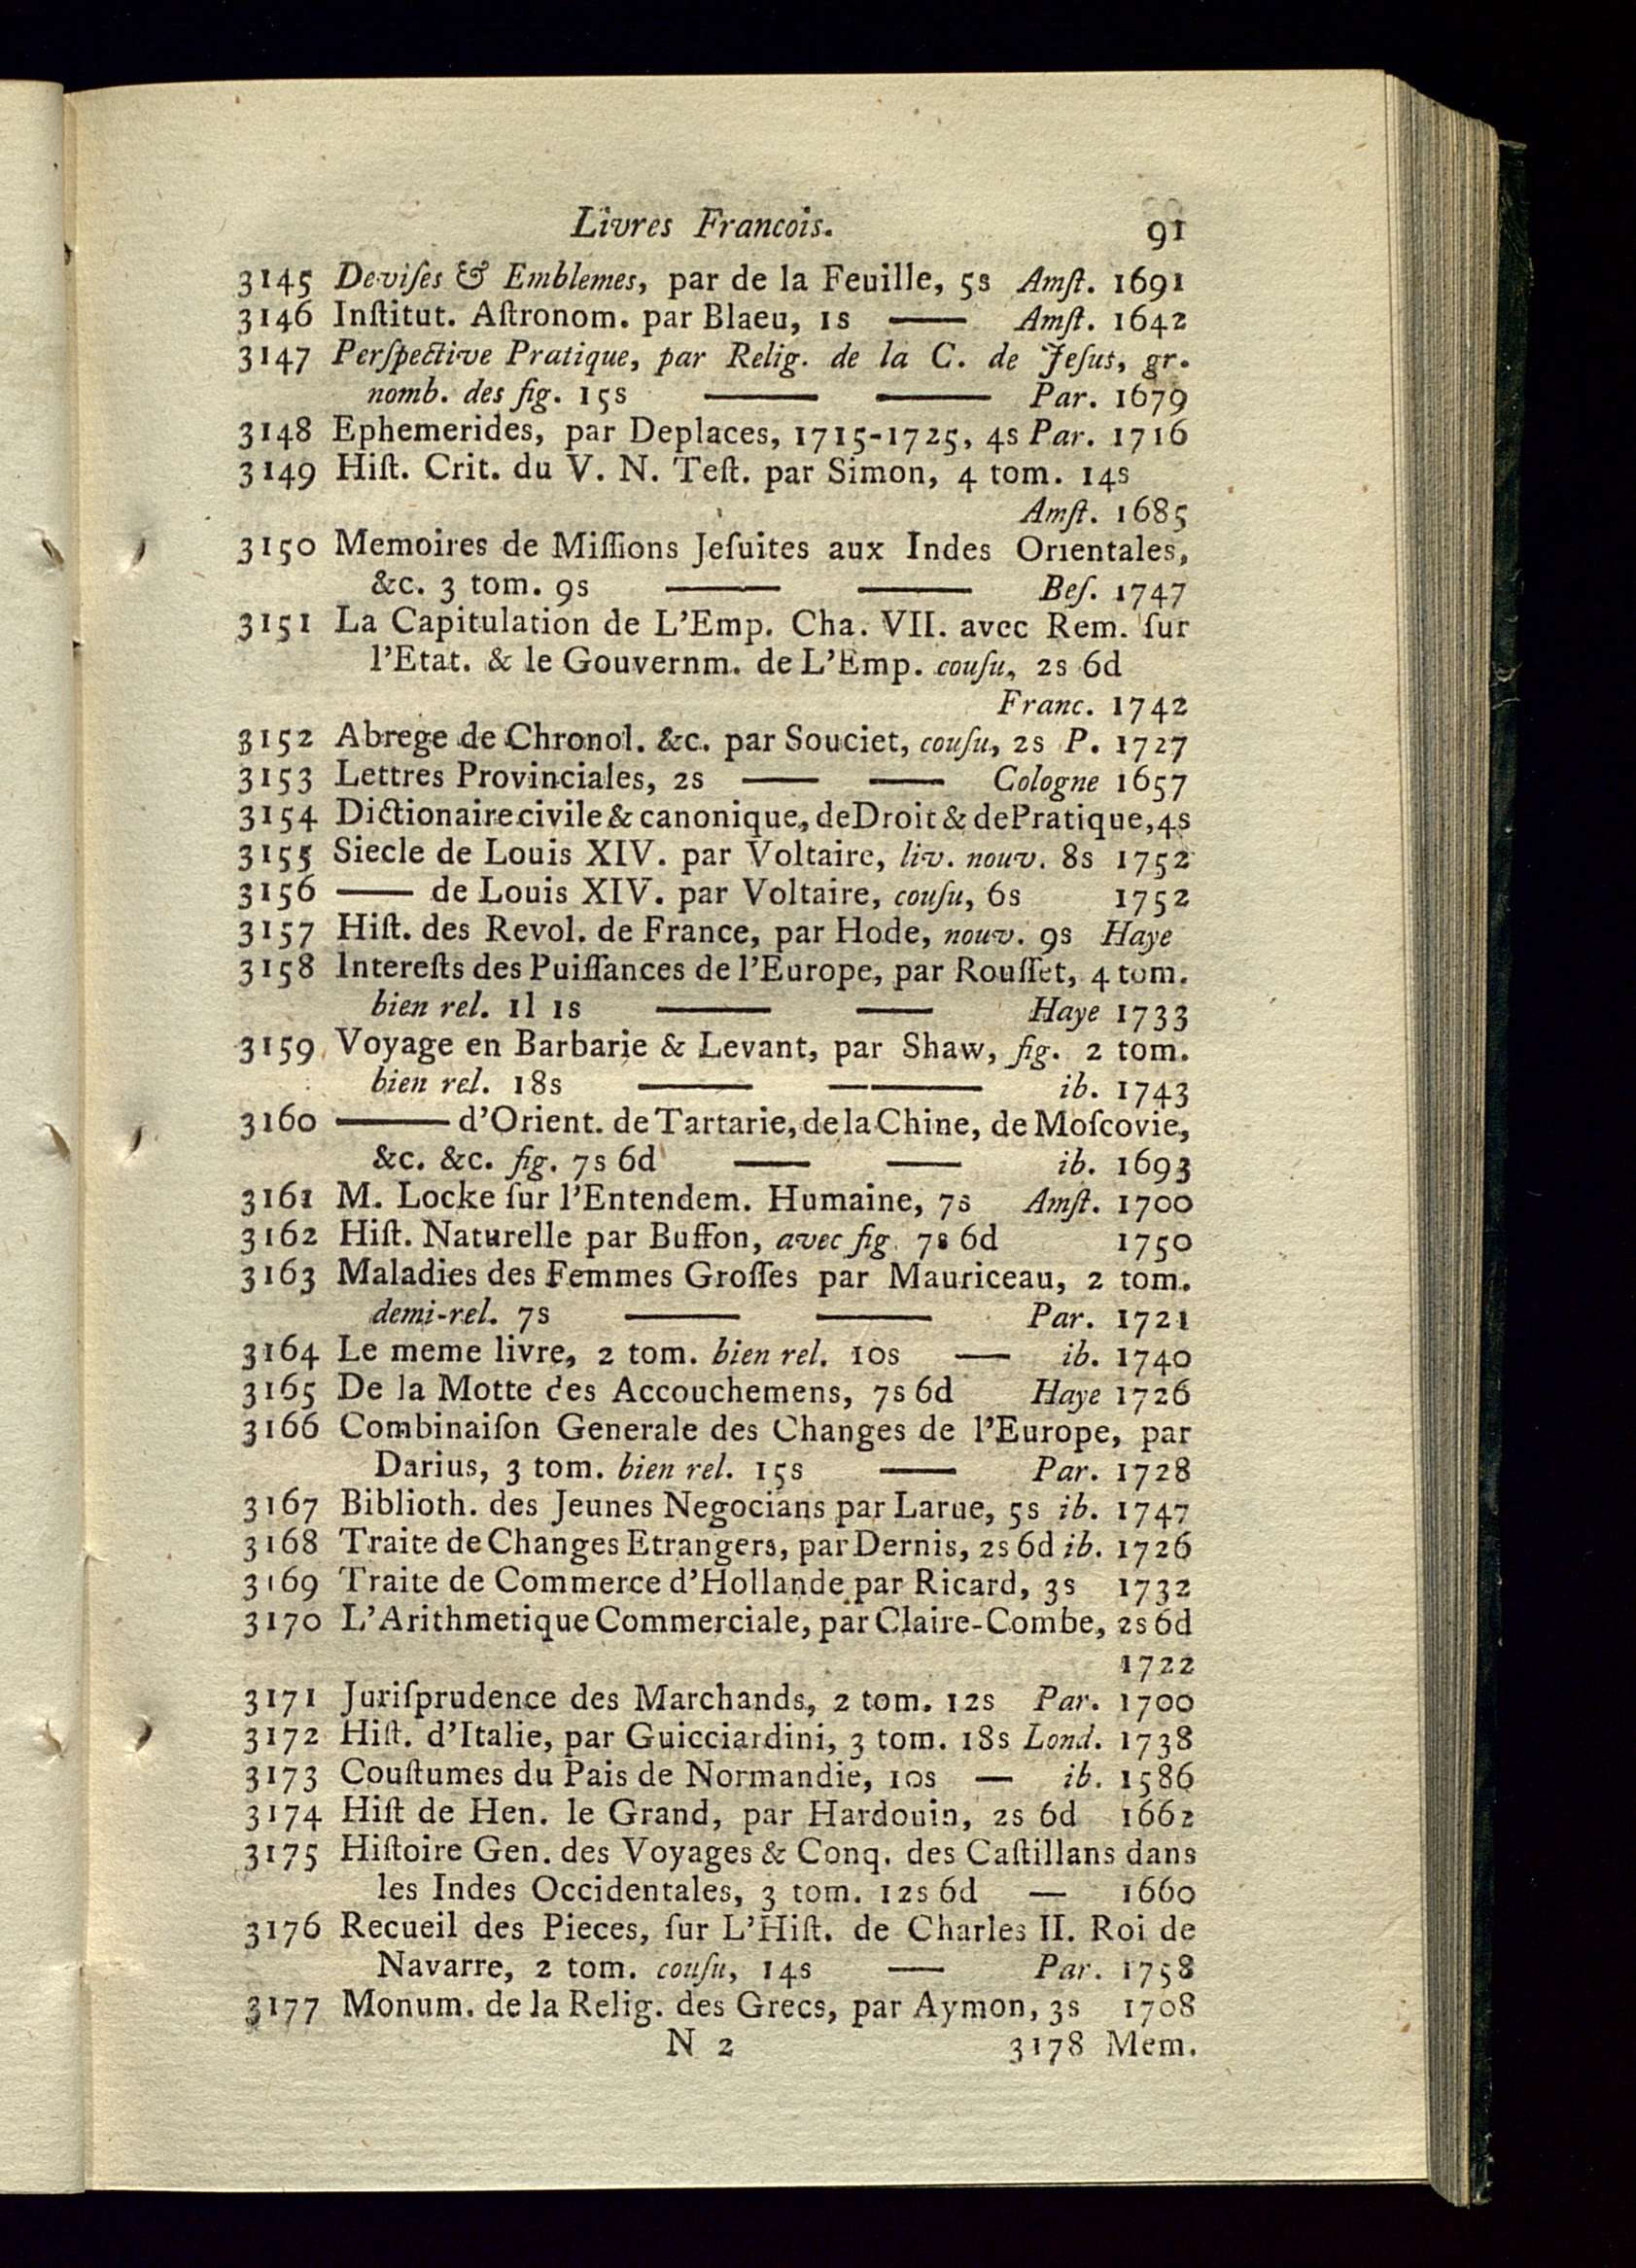 Livres Francois. 91
3145 Deviſes & Emblemes, par de la Feuille, 5s Amſt. 1691
3146 Inſtitut. Aſtronom. par Blaeu, 1s —— Amſt. 1642
3147 Perſpective Pratique, par Relig. de la C. de Jeſus, gr.
nomb. des fig. 15s —— —— Par. 1679
3148 Ephemerides, par Deplaces, 1715-1725, 4s Par. 1716
3149 Hiſt. Crit. du V. N. Teſt. par Simon, 4 tom. 14s
Amſt. 1685
3150 Memoires de Miſſions Jeſuites aux Indes Orientales,
&c. 3 tom. 9s —— —— Beſ. 1747
3151 La Capitulation de L'Emp. Cha. VII. avec Rem. ſur
l'Etat. & le Gouvernm. de L'Emp. couſu, 2s 6d
Franc. 1742
3152 Abrege de Chronol. &c. par Souciet, couſu, 2s P. 1727
3153 Lettres Provinciales, 2s —— —— Cologne 1657
3154 Dictionaire civile & canonique, de Droit & de Pratique, 4s
3155 Siecle de Louis XIV. par Voltaire, liv. nouv. 8s 1752
3156 —— de Louis XIV. par Voltaire, couſu, 6s 1752
3157 Hiſt. des Revol. de France, par Hode, nouv. 9s Haye
3158 Intereſts des Puiſſances de l'Europe, par Rouſſet, 4 tom.
bien rel. 1l 1s —— —— Haye 1733
3159 Voyage en Barbarie & Levant, par Shaw, fig. 2 tom.
bien rel. 18s —— —— ib. 1743
3160 —— d'Orient. de Tartarie, de la Chine, de Moſcovie,
&c. &c. fig. 7s 6d —— —— ib. 1693
3161 M. Locke ſur l'Entendem. Humaine, 7s Amſt. 1700
3162 Hiſt. Naturelle par Buffon, avec fig. 7s 6d 1750
3163 Maladies des Femmes Groſſes par Mauriceau, 2 tom.
demi-rel. 7s —— —— Par. 1721
3164 Le meme livre, 2 tom. bien rel. 10s — ib. 1740
3165 De la Motte des Accouchemens, 7s 6d Haye 1726
3166 Combinaiſon Generale des Changes de l'Europe, par
Darius, 3 tom. bien rel. 15s —— Par. 1728
3167 Biblioth. des Jeunes Negocians par Larue, 5s ib. 1747
3168 Traite de Changes Etrangers, par Dernis, 2s 6d ib. 1726
3169 Traite de Commerce d'Hollande par Ricard, 3s 1732
3170 L'Arithmetique Commerciale, par Claire-Combe, 2s 6d
1722
3171 Juriſprudence des Marchands, 2 tom. 12s Par. 1700
3172 Hiſt. d'Italie, par Guicciardini, 3 tom. 18s Lond. 1738
3173 Couſtumes du Pais de Normandie, 10s — ib. 1586
3174 Hiſt de Hen. le Grand, par Hardouin, 2s 6d 1662
3175 Hiſtoire Gen. des Voyages & Conq. des Caſtillans dans
les Indes Occidentales, 3 tom. 12s 6d — 1660
3176 Recueil des Pieces, ſur L'Hiſt. de Charles II. Roi de
Navarre, 2 tom. couſu, 14s —— Par. 1758
3177 Monum. de la Relig. des Grecs, par Aymon, 3s 1708
N 2 3178 Mem.